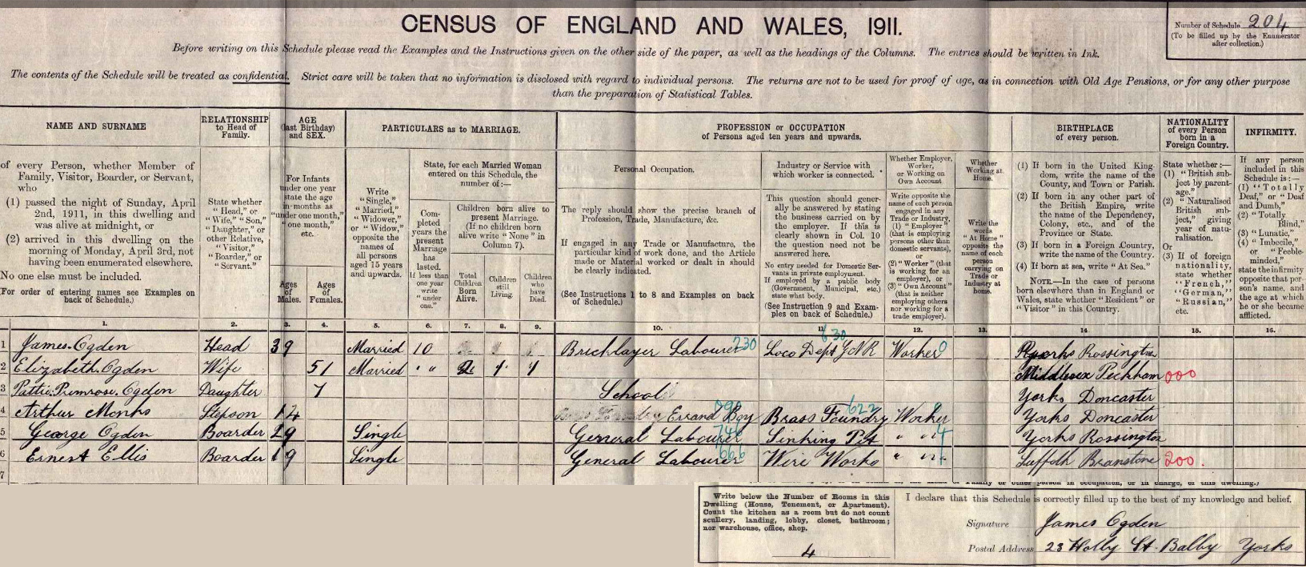 CENSUS OF ENGLAND AND WALES, 1911.
Number of Schedule 204
(To be filled up by the Enumerator
after collection.)
Before writing on this Schedule please read the Examples and the Instructions given on the other side of the paper, as well as the headings of the Columns. The entries should be written in Ink.
The contents of the Schedule will be treated as confidential. Strict care will be taken that no information is disclosed with regard to individual persons. The returns are not to be used for proof of age, as in connection with Old Age Pensions, or for any other purpose
than the preparation of Statistical Tables.
NAME AND SURNAME
of every Person, whether Member of
Family, Visitor, Boarder, or Servant,
who
(1) passed the night of Sunday, April
2nd, 1911, in this dwelling and
was alive at midnight, or
(2) arrived in this dwelling on the
morning of Monday, April 3rd, not
having been enumerated elsewhere.
No one else must be included.
(For order of entering names see Examples on
back of Schedule.)
RELATIONSHIP
to Head of
Family.
State whether
"Head," or
"Wife," "Son,"
"Daughter," or
other Relative,
"Visitor,"
"Boarder," or
"Servant."
AGE
(last Birthday)
and SEX.
For Infants
under one year
state the age
in months as
"under one month,"
"one month,"
etc.
Ages
of
Males.
Ages
of
Females.
PARTICULARS as to MARRIAGE.
Write
"Single,"
"Married,"
"Widower,"
or "Widow,"
opposite the
names of
all persons
aged 15 years
and upwards.
State, for each Married Woman
entered on this Schedule, the
number of:—
Completed
years the
present
Marriage
has
lasted.
If less than
one year
write
"under
one."
Children born alive to
present Marriage.
(If no children born
alive write "None" in
Column 7).
Total
Children
Born
Alive.
Children
still
Living.
Children
who
have
Died.
PROFESSION or OCCUPATION
of Persons aged ten years and upwards.
Personal Occupation.
The reply should show the precise branch of
Profession, Trade, Manufacture, &c.
If engaged in any Trade or Manufacture, the
particular kind of work done, and the Article
made or Material worked or dealt in should
be clearly indicated.
(See Instructions 1 to 8 and Examples on back
of Schedule.)
Industry or Service with
which worker is connected.
This question should generally
be answered by stating
the business carried on by
the employer. If this is
clearly shown in Col. 10
the question need not be
answered here.
No entry needed for Domestic Servants
in private employment.
If employed by a public body
(Government, Municipal, etc.)
state what body.
(See Instruction 9 and Examples
on back of Schedule.)
Whether Employer,
Worker,
or Working on
Own Account.
Write opposite the name
of each person engaged
in any Trade or
Industry,
(1) "Employer"
(that is employing
persons other than
domestic servants),
or
(2) "Worker" (that
is working for an
employer), or
(3) "Own Account"
(that is neither
employing others
nor working for a
trade employer).
Whether
Working at
Home.
Write the
words
"At Home"
opposite the
name of each
person
carrying on
Trade or
Industry at
home.
BIRTHPLACE
of every person.
(1) If born in the United Kingdom,
write the name of the
County, and Town or Parish.
(2) If born in any other part of
the British Empire, write
the name of the Dependency,
Colony, etc., and of the
Province or State.
(3) If born in a Foreign Country,
write the name of the Country.
(4) If born at sea, write "At Sea."
NOTE.—In the case of persons
born elsewhere than in England or
Wales, state whether "Resident" or
"Visitor" in this Country.
NATIONALITY
of every Person
born in a
Foreign Country.
State whether:—
(1) "British subject
by parentage."
(2) "Naturalised
British subject,"
giving
year of naturalisation.
Or
(3) If of foreign
nationality,
state whether
"French,"
"German,"
"Russian,"
etc.
INFIRMITY.
If any person
included in this
Schedule is:—
(1) "Totally
Deaf," or "Deaf
and Dumb,"
(2) "Totally
Blind,"
(3) "Lunatic,"
(4) "Imbecile,"
or "Feeble-minded,"
state the infirmity
opposite that person's
name, and
the age at which
he or she became
afflicted.
1. 2. 3. 4. 5. 6. 7. 8. 9. 10. 11 12. 13. 14 15. 16.
1 James Ogden Head 39 Married 10 Bricklayer Labourer 230 Loco Dept Worker Yorks Rossington
2 Elizabeth Ogden Wife 51 Married " " Middlesex Peckham 000
3 Pattie Primrose Ogden Daughter 7 School Yorks Doncaster
4 Arthur Monks Stepson 14 Errand Boy Brass Foundry 622 Worker Yorks Doncaster
5 George Ogden Boarder 29 Single General Labourer Sinking Pit " " Yorks Rossington
6 Ernest Ellis Boarder 19 Single General Labourer 666 Wire Works " " Suffolk Branstone 200.
7
Write below the Number of Rooms in this
Dwelling (House, Tenement, or Apartment).
Count the kitchen as a room but do not count
scullery, landing, lobby, closet, bathroom;
nor warehouse, office, shop.
4
I declare that this Schedule is correctly filled up to the best of my knowledge and belief.
Signature James Ogden
Postal Address 23 Holby St. Balby Yorks